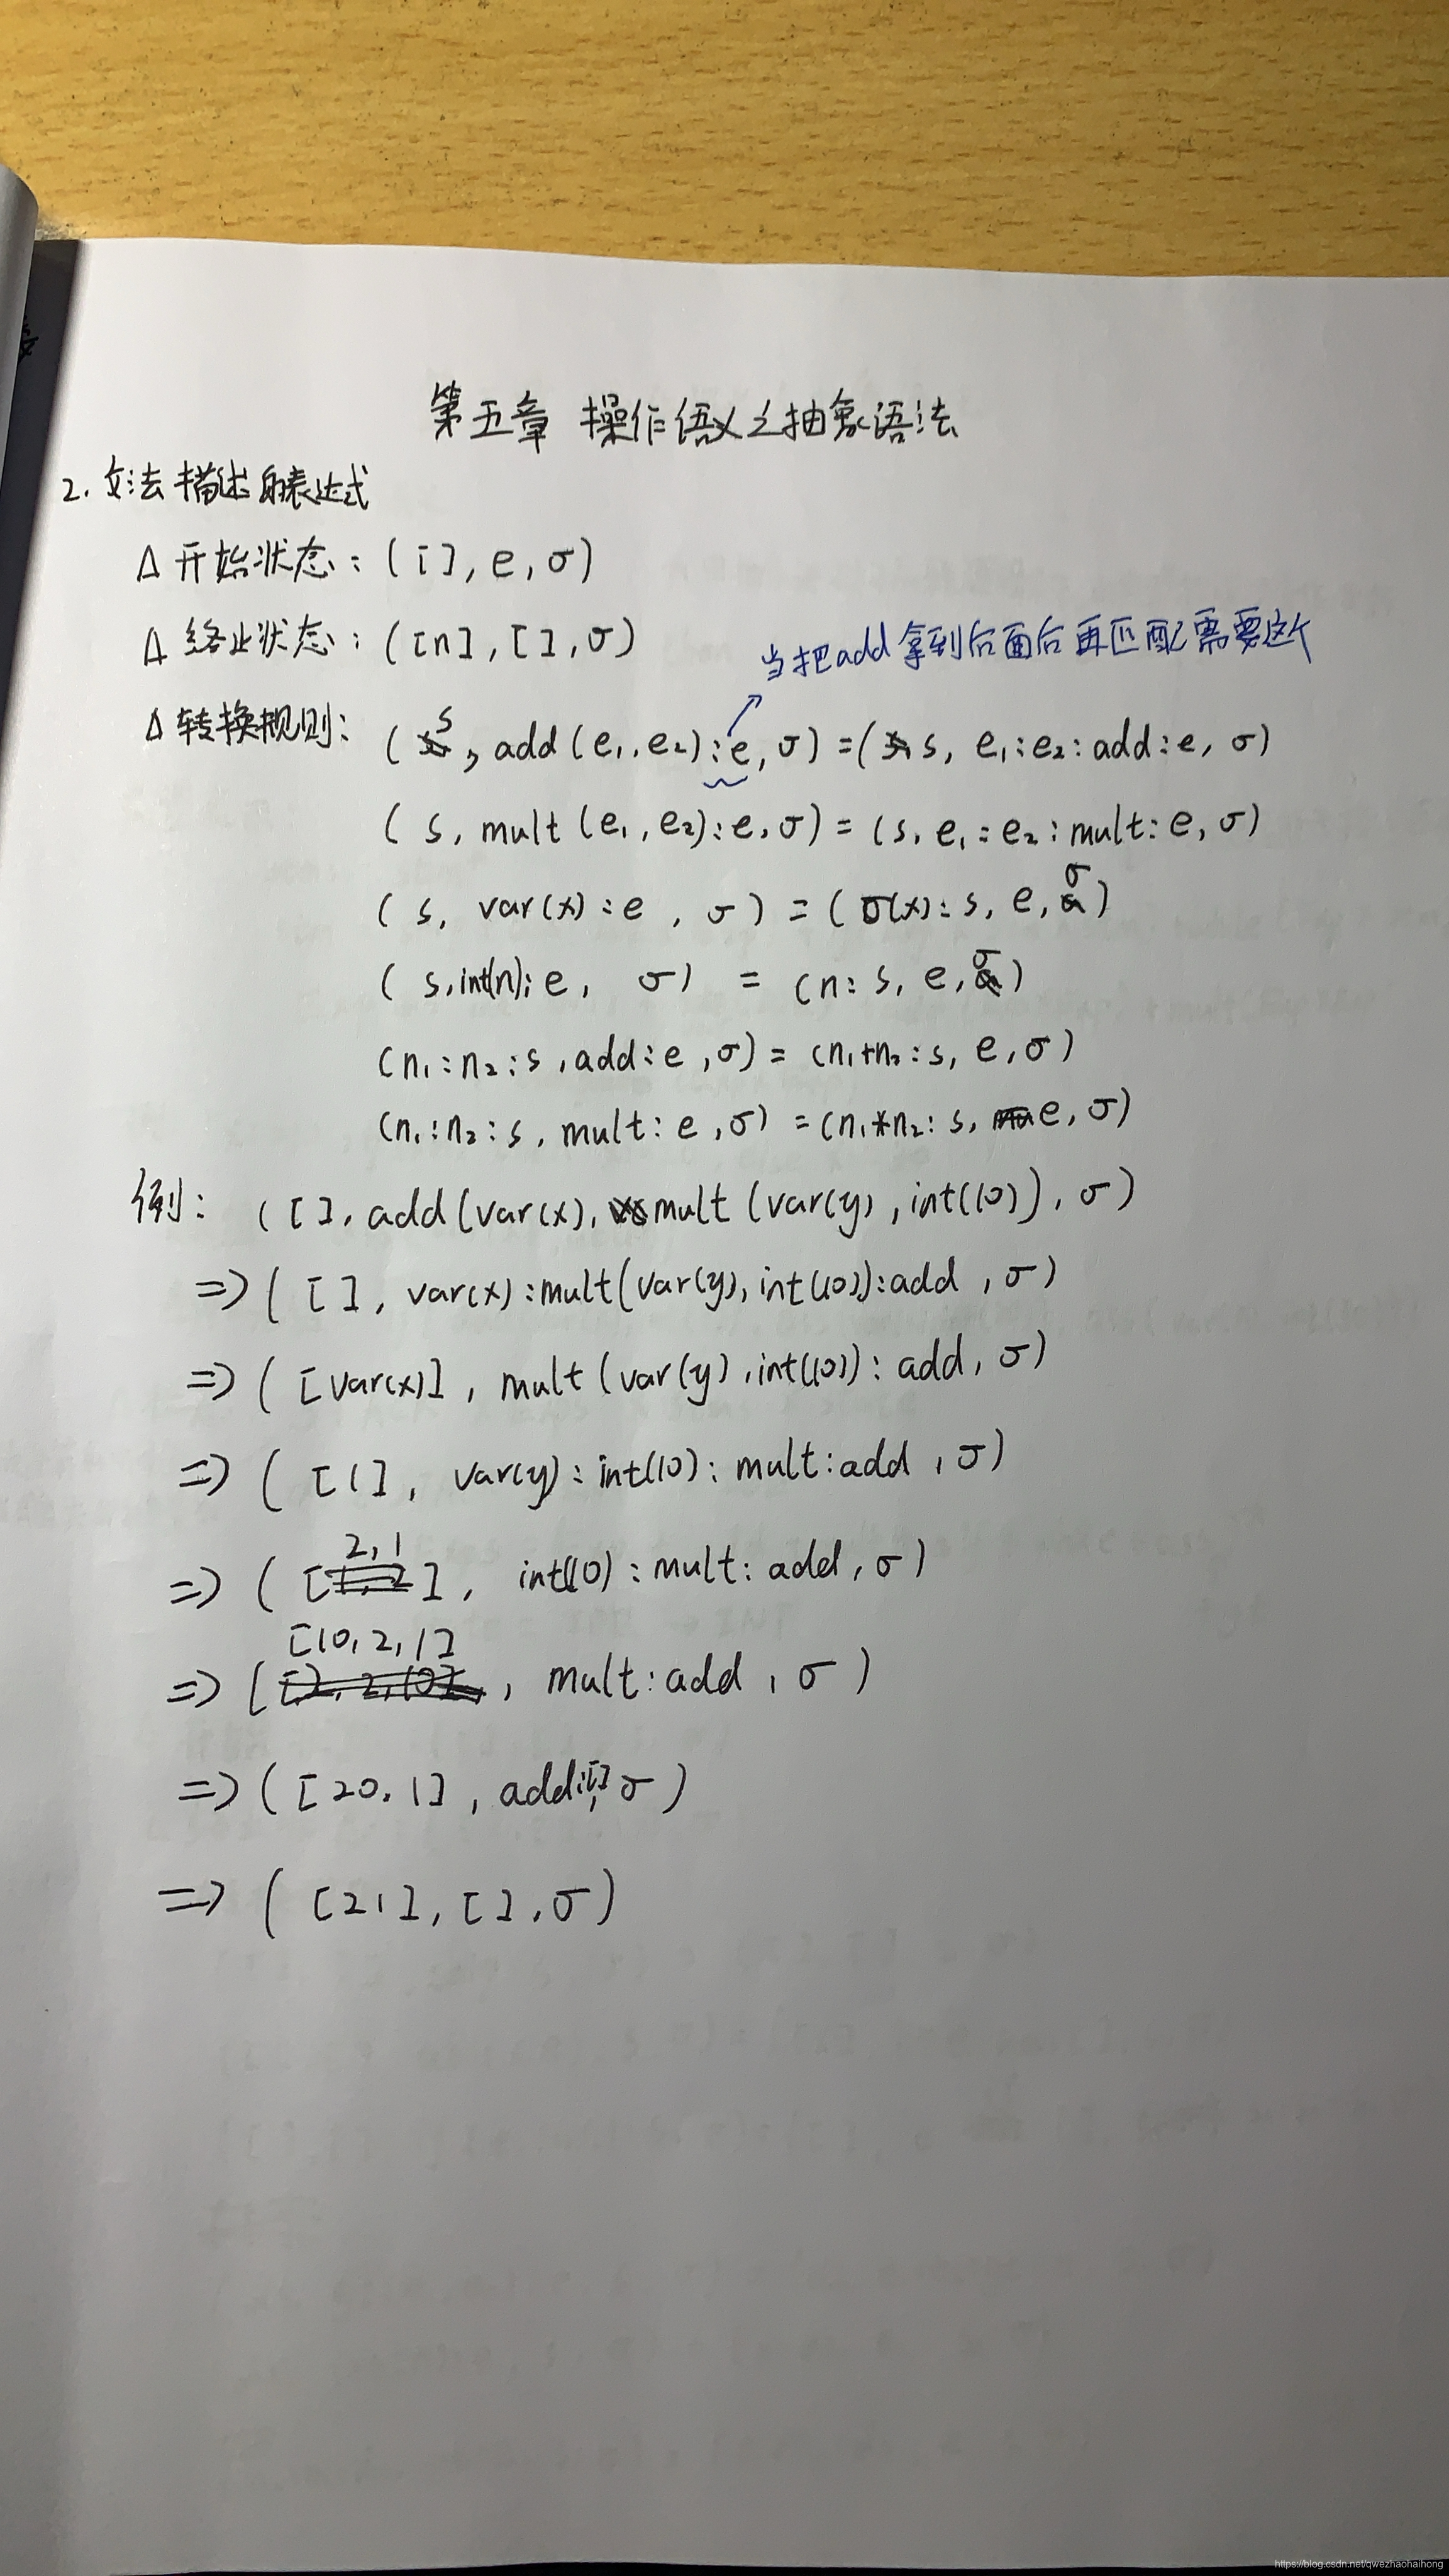 第五章 操作语义之抽象语法
2. 文法描述的表达式
Δ 开始状态: ([], e, σ)
Δ 终止状态: ([n], [], σ)
当把add拿到后面后再匹配需要这个
Δ 转换规则: (s, add(e₁, e₂):e, σ) = (s, e₁:e₂:add:e, σ)
(s, mult(e₁, e₂):e, σ) = (s, e₁:e₂:mult:e, σ)
(s, var(x):e, σ) = (σ(x):s, e, σ)
(s, int(n):e, σ) = (n:s, e, σ)
(n₁:n₂:s, add:e, σ) = (n₁+n₂:s, e, σ)
(n₁:n₂:s, mult:e, σ) = (n₁*n₂:s, e, σ)
例: ([], add(var(x), mult(var(y), int(10)), σ)
=> ([], var(x):mult(var(y), int(10)):add, σ)
=> ([var(x)], mult(var(y), int(10)):add, σ)
=> ([1], var(y):int(10):mult:add, σ)
=> ([2,1], int(10):mult:add, σ)
=> ([10,2,1], mult:add, σ)
=> ([20,1], add:[], σ)
=> ([21], [], σ)
https://blog.csdn.net/qwezhaohaihong